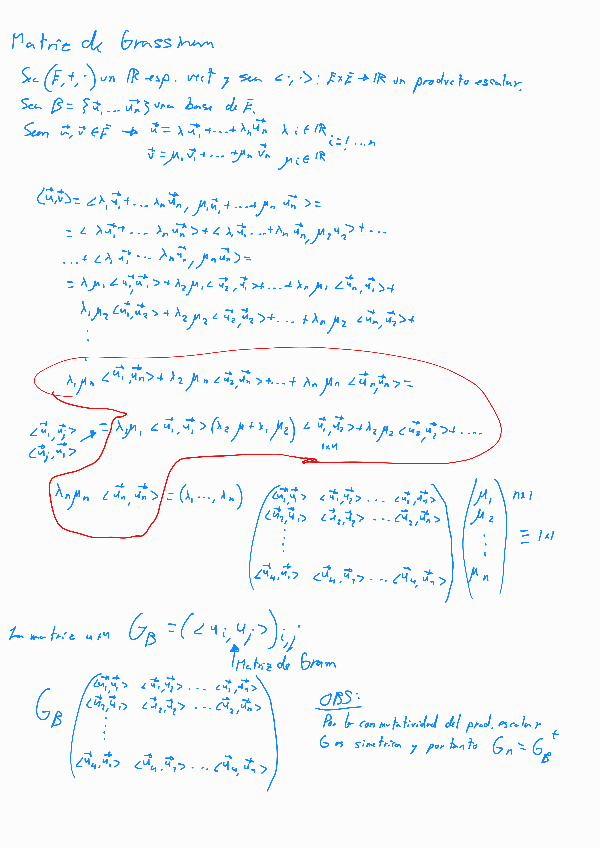 Matriz de Grassmam
Sea (E,+,·) un ℝ esp. vect y sea <·,·>: E×E → ℝ un producto escalar.
Sea B = {u⃗₁ ... u⃗ₙ} una base de E.
Sean u⃗, v⃗ ∈ E → u⃗ = λ u⃗₁ + ... + λₙ u⃗ₙ λ i ∈ ℝ i=1 ... n
v⃗ = μ₁ v⃗₁ + ... + μₙ v⃗ₙ μ i ∈ ℝ
(u⃗,v⃗) = <λ₁ u⃗₁ + ... λₙ u⃗ₙ, μ₁ u⃗₁ + ... + μₙ u⃗ₙ> =
= <λ u⃗₁ + ... λₙ u⃗ₙ> + <λ₁ u⃗₁ ... + λₙ u⃗ₙ, μ₂ u₂> + ...
... + <λ₁ u⃗₁ ... λₙ u⃗ₙ, μₙ u⃗ₙ> =
= λ μ₁ <u⃗₁,u⃗₁> + λ₂ μ₁ <u⃗₂,u⃗₁> + ... + λₙ μ₁ <u⃗ₙ,u⃗₁> +
λ₁ μ₂ <u⃗₁,u⃗₂> + λ₂ μ₂ <u⃗₂,u⃗₂> + ... + λₙ μ₂ <u⃗ₙ,u⃗₂> +
⋮
λ₁ μₙ <u⃗₁,u⃗ₙ> + λ₂ μₙ <u⃗₂,u⃗ₙ> + ... + λₙ μₙ <u⃗ₙ,u⃗ₙ> =
<u⃗ᵢ,u⃗ⱼ> = λ₁ μ₁ <u⃗₁,u⃗₁> (λ₂ μ + λ₁ μ₂) <u⃗₁,u⃗₂> + λ₂ μ₂ <u⃗₂,u⃗₂> + ....
<u⃗ⱼ,u⃗ᵢ>
n×n
λₙ μₙ <u⃗ₙ,u⃗ₙ> = (λ₁ ..., λₙ) (<u⃗₁,u⃗₁> <u⃗₁,u⃗₂> ... <u⃗₁,u⃗ₙ>) (μ₁) n×1
<u⃗₂,u⃗₁> <u⃗₂,u⃗₂> ... <u⃗₂,u⃗ₙ> μ₂
⋮ ⋮ ≡ 1×1
<u⃗ₙ,u⃗₁> <u⃗ₙ,u⃗₂> ... <u⃗ₙ,u⃗ₙ> μₙ
La matriz n×n G_B = (<uᵢ, uⱼ>)ᵢ,ⱼ
Matriz de Gram
G_B (<u⃗₁,u⃗₁> <u⃗₁,u⃗₂> ... <u⃗₁,u⃗ₙ>)
<u⃗₂,u⃗₁> <u⃗₂,u⃗₂> ... <u⃗₂,u⃗ₙ>
⋮
<u⃗ₙ,u⃗₁> <u⃗ₙ,u⃗₂> ... <u⃗ₙ,u⃗ₙ>
OBS:
Por la conmutatividad del prod. escalar
G es simetrica y por tanto Gₙ = G_Bᵗ